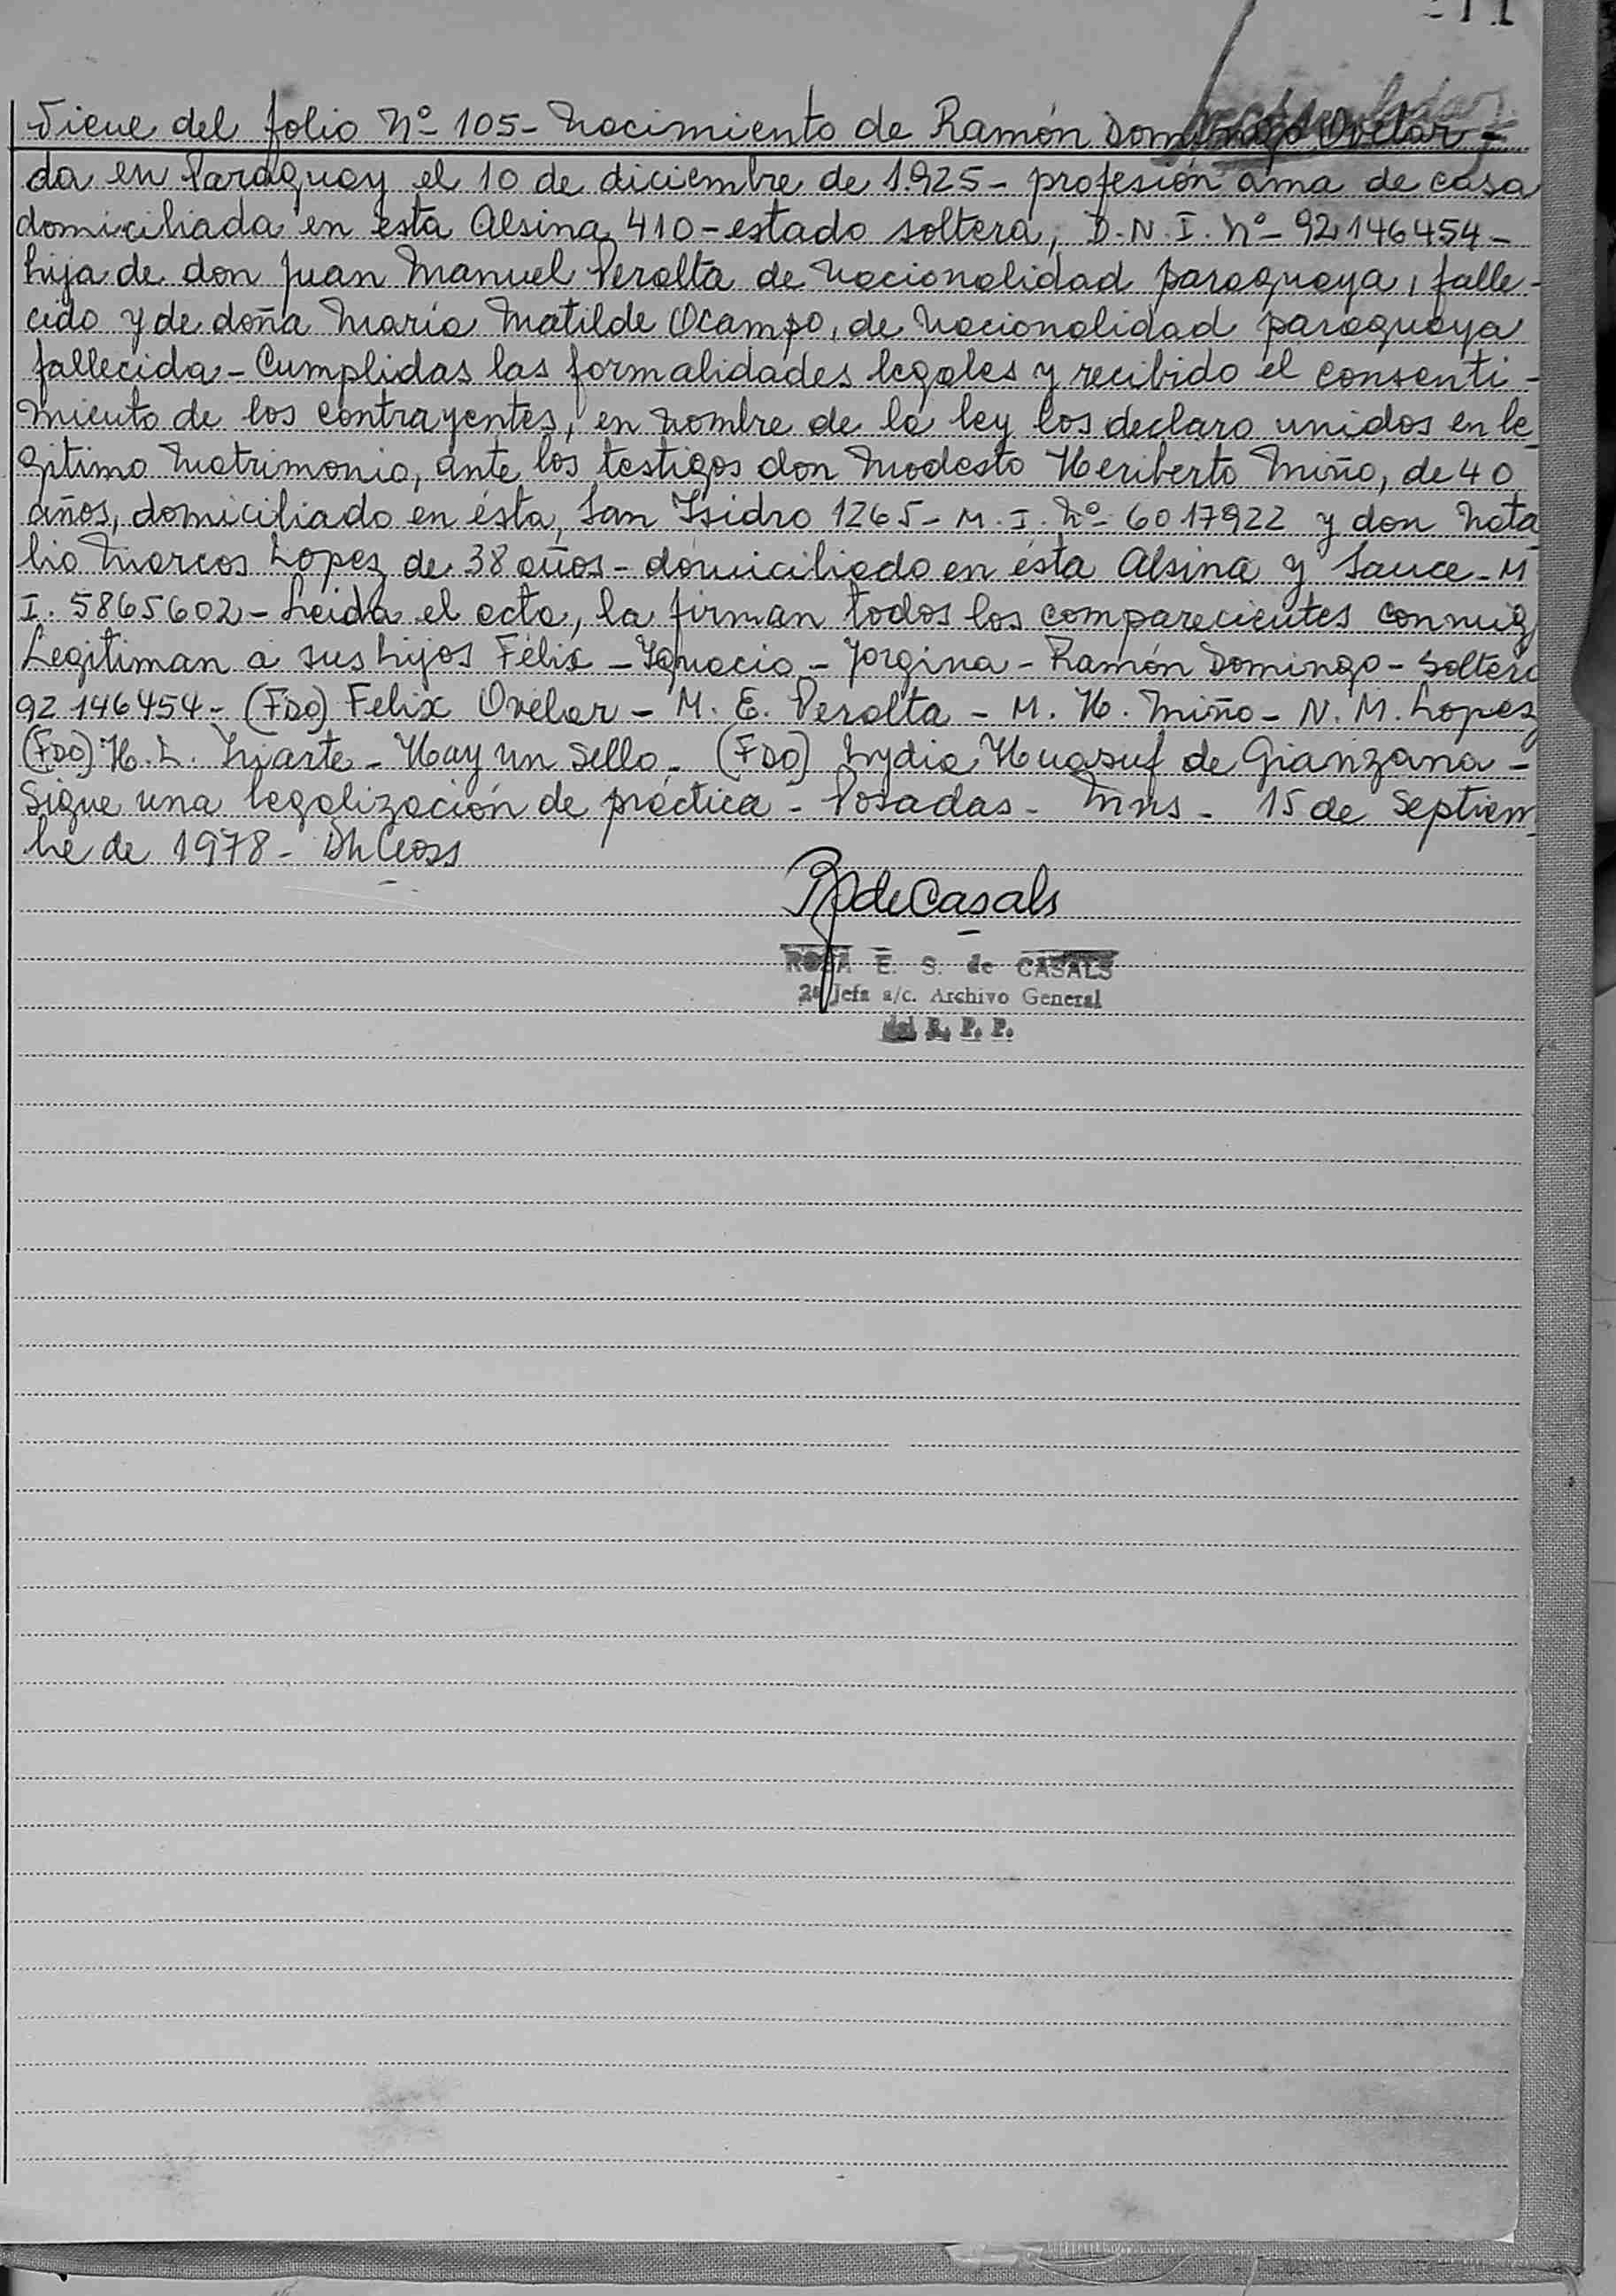 Viene del folio Nº 105 - Nacimiento de Ramón Domingo Ovelar -
da en Paraguay el 10 de diciembre de 1.925 - profesión ama de casa
domiciliada en esta Alsina 410 - estado soltera, D.N.I. Nº - 92146454 -
hija de don Juan Manuel Peralta de nacionalidad paraguaya, falle-
cido y de doña María Matilde Ocampo, de nacionalidad paraguaya
fallecida - Cumplidas las formalidades legales y recibido el consenti-
miento de los contrayentes, en nombre de la ley los declaro unidos en le
gitimo matrimonio, ante los testigos don Modesto Heriberto Miño, de 40
años, domiciliado en ésta, San Isidro 1265 - M.I. Nº - 6017922 y don Nata
lio Marcos Lopez de 38 años - domiciliado en ésta Alsina y Sauce - M
I. 5865602 - Leida el acta, la firman todos los comparecientes conmig
Legitiman a sus hijos Félix - Ignacio - Jorgina - Ramón Domingo - Soltera
92 146454 - (FDO) Felix Ovelar - M. E. Peralta - M. H. Miño - N. M. Lopez
(FDO) H. L. Iriarte - Hay un sello - (FDO) Lydia Huasuf de Gianzana -
Sigue una legalización de práctica - Posadas - Mns - 15 de Septiem
bre de 1978 -
R de Casals
ROSA E. S. de CASALS
2ª Jefa a/c. Archivo General
del R. P. P.